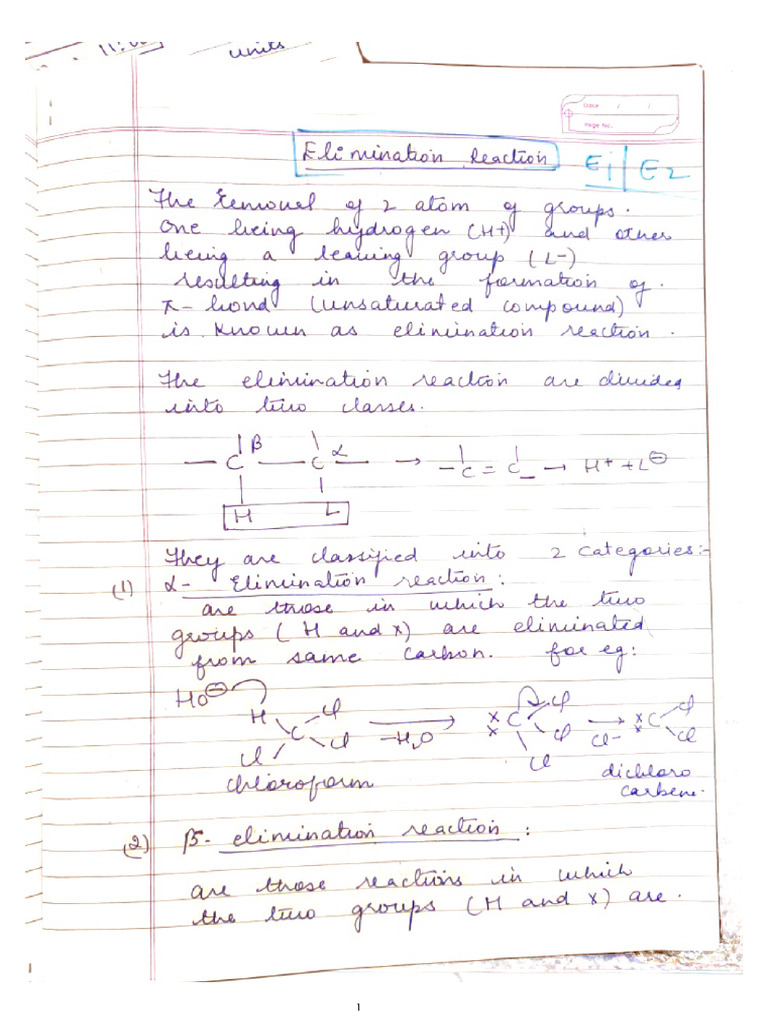 units
Date / /
Page No.
Elimination Reaction E1 | E2
The removel of 2 atom of groups.
One being hydrogen (H+) and other
being a leaving group (L-)
resulting in the formation of.
π- bond (unsaturated compound)
is known as elimination reaction.
The elimination reaction are divided
into two classes.
β α
— C — C — → — C = C — → H+ + L⊖
H L
They are classified into 2 categories:-
(1) α- Elimination reaction:
are those in which the two
groups ( H and x) are eliminated
from same carbon. for eg:
HO⊖
H C Cl Cl Cl -H2O → x x C Cl Cl Cl → Cl- x x C Cl Cl
chloroform
dichloro
carbene.
(2) β- elimination reaction :
are those reactions in which
the two groups (H and x) are.
1